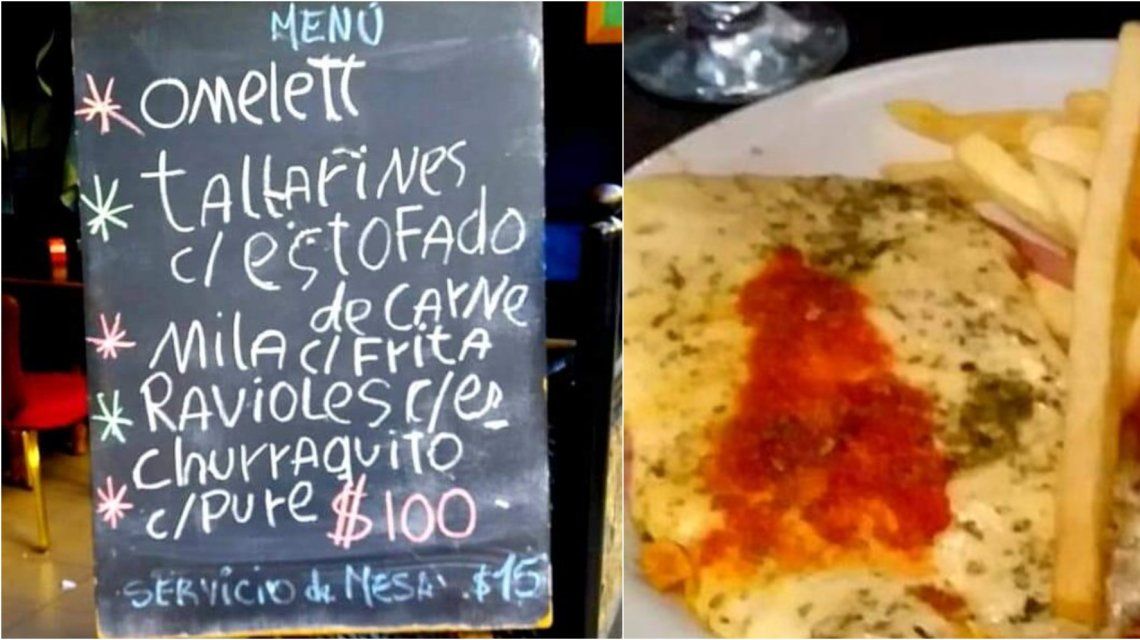 MENÚ
* OMELETT
* TALLARINES
c/ESTOFADO
de CARNE
* MILA c/FRITA
* RAVIOLES c/es
CHURRAQUITO
* c/PURE $100
SERVICIO de MESA $15